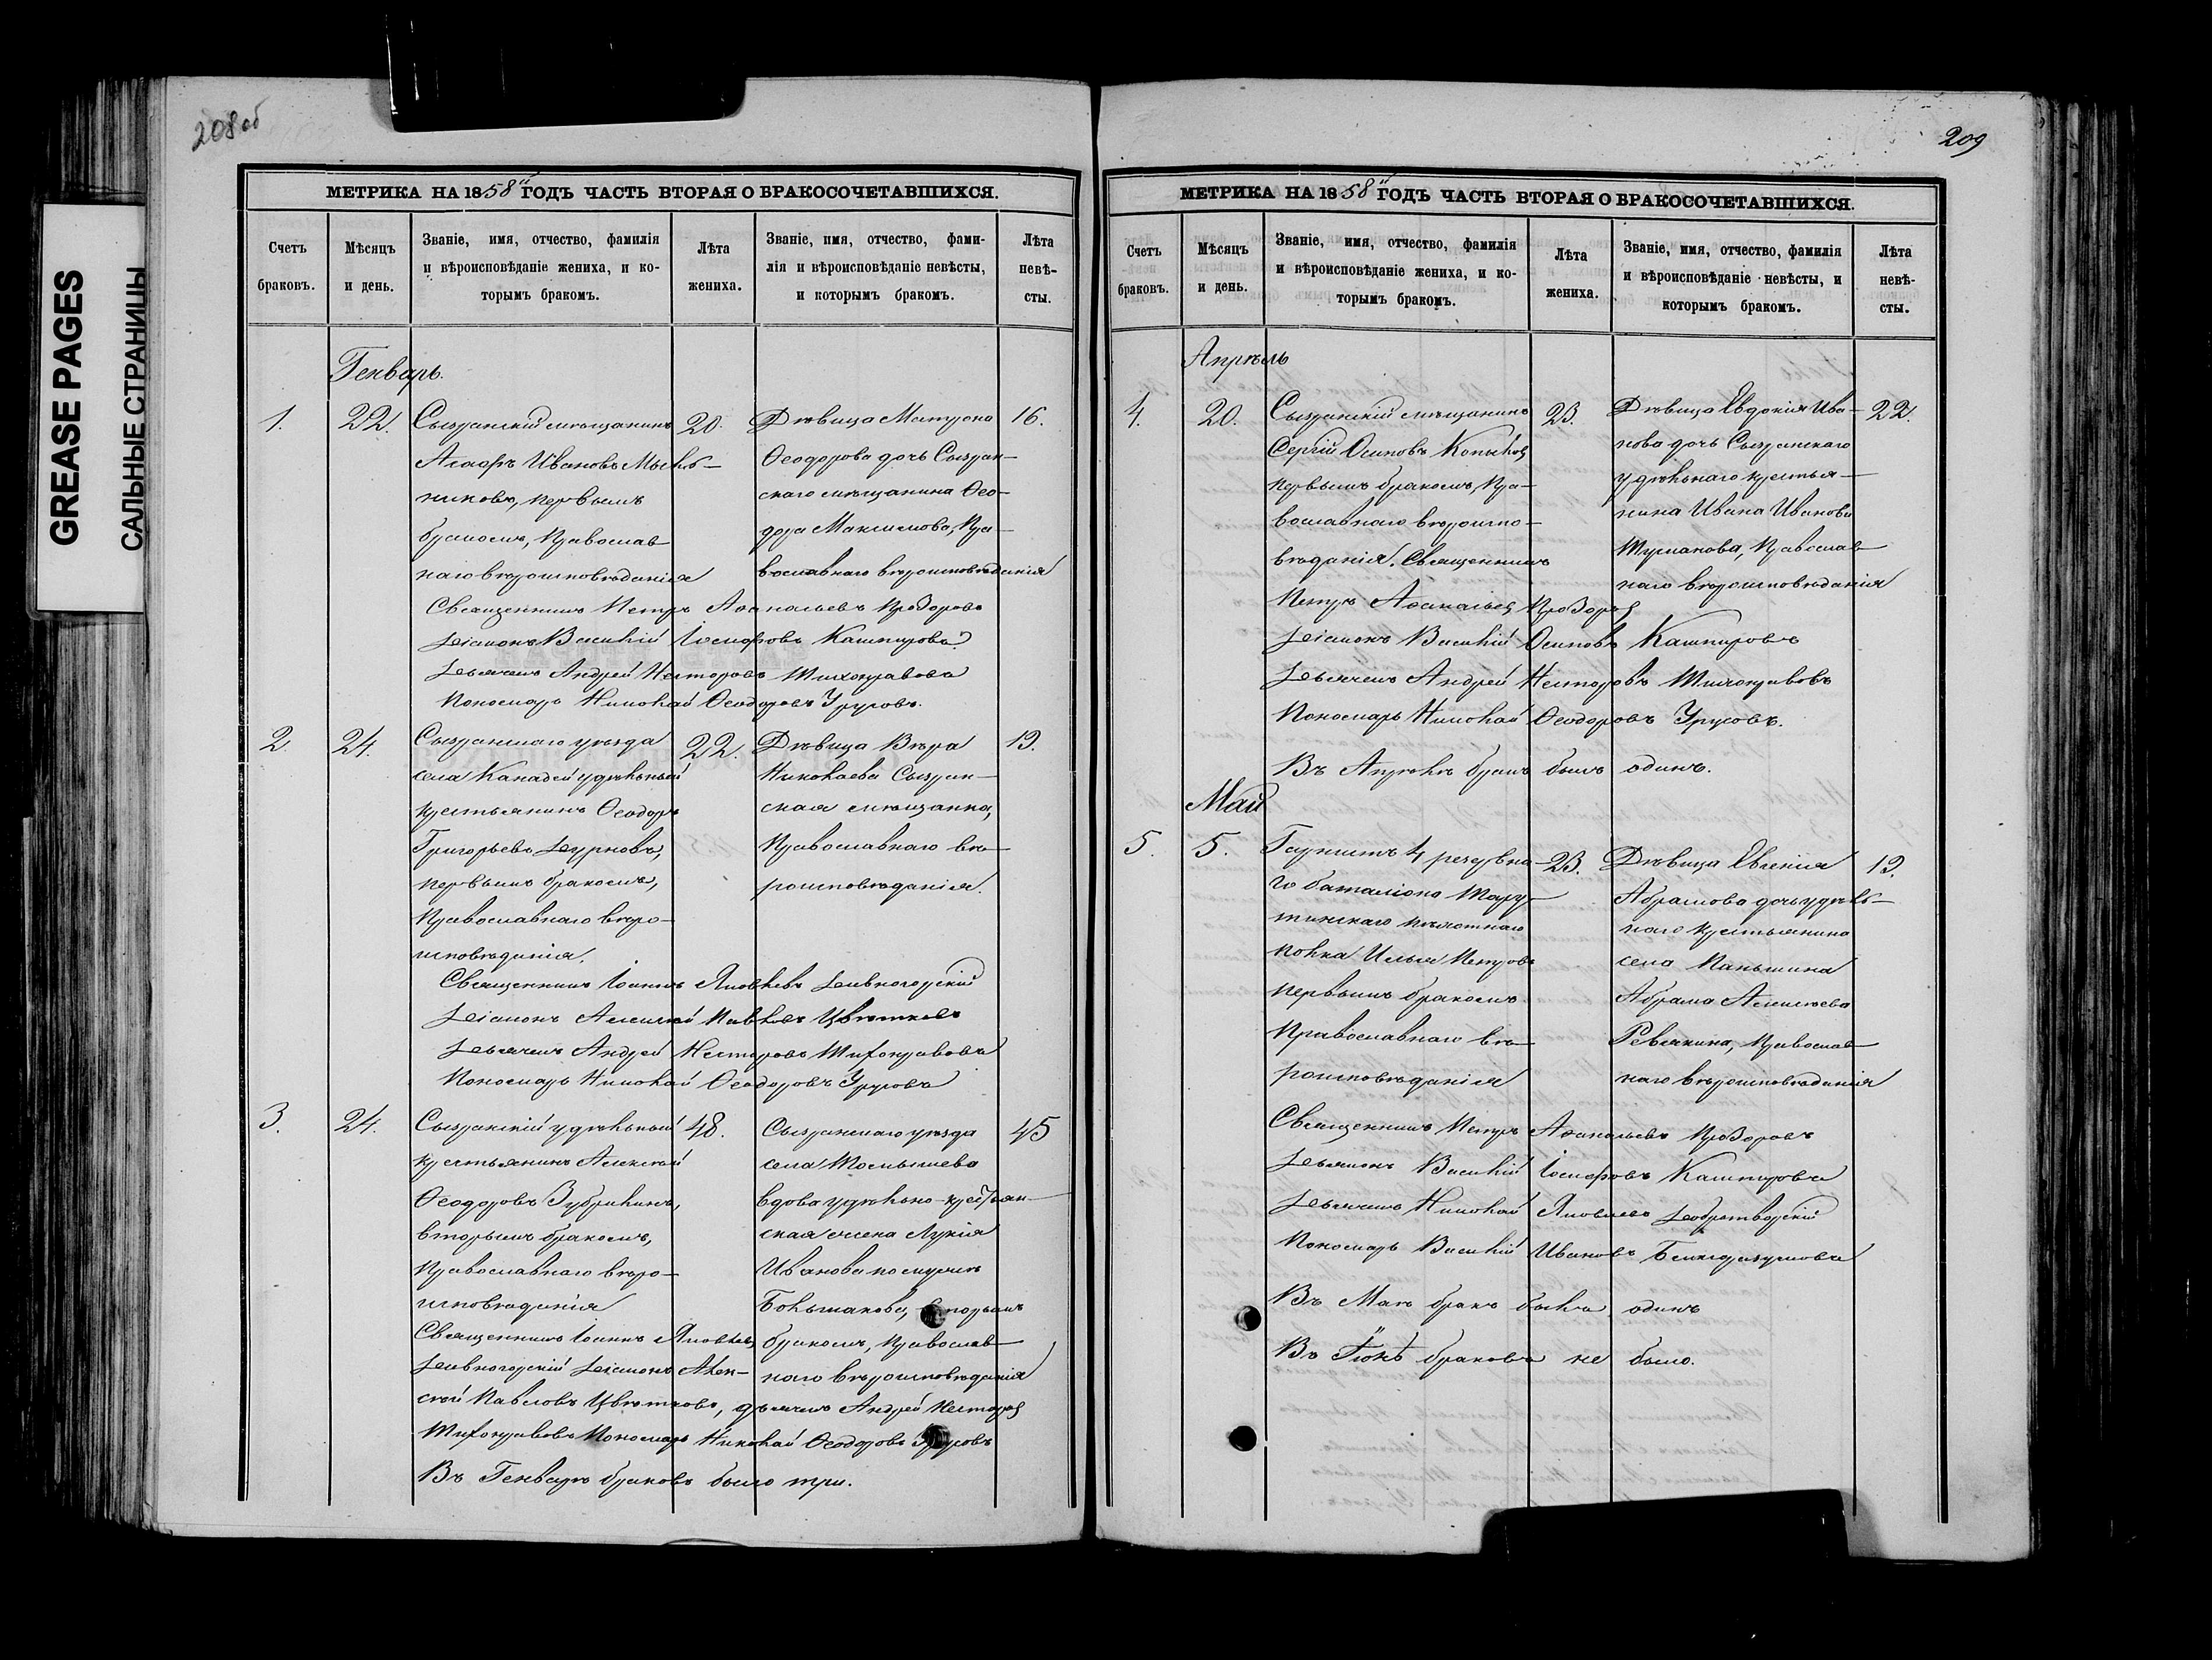 GREASE PAGES
САЛЬНЫЕ СТРАНИЦЫ
208об
МЕТРИКА НА 1858й ГОДЪ ЧАСТЬ ВТОРАЯ О БРАКОСОЧЕТАВШИХСЯ.
Счетъ браковъ.
Мѣсяцъ и день.
Званіе, имя, отчество, фамилія
и вѣроисповѣданіе жениха, и ко-
торымъ бракомъ.
Лѣта жениха.
Званіе, имя, отчество, фами-
лія и вѣроисповѣданіе невѣсты,
и которымъ бракомъ.
Лѣта невѣ-
сты.
Генварь.
1. 22.
Сызранскій мѣщанинъ
Ивановъ Мыль-
никовъ, первымъ
бракомъ, Православ
наго вѣроисповѣданія
20.
Дѣвица Матрона
Ѳеодорова дочь Сызран-
скаго мѣщанина Ѳео-
дора Максимова, Пра-
вославнаго вѣроисповѣданія
16.
Священникъ Петръ Аѳанасьевъ Прозоровъ
Діаконъ Василій Іосифовъ Кашпировъ
Дьячекъ Андрей Несторовъ Тихонравовъ
Пономарь Николай Ѳеодоровъ Урусовъ.
2. 24.
Сызранскаго уѣзда
села Канадей удѣльный
крестьянинъ Ѳеодоръ
Григорьевъ Дурновъ,
первымъ бракомъ,
Православнаго вѣро-
исповѣданія.
22.
Дѣвица Вѣра
Николаева Сызран-
ская мѣщанка,
Православнаго вѣ-
роисповѣданія.
19.
Священникъ Іоаннъ Яковлевъ Дивногорскій
Діаконъ Алексѣй Павловъ Цвѣтковъ
Дьячекъ Андрей Несторовъ Тихонравовъ
Пономарь Николай Ѳеодоровъ Урусовъ
3. 24.
Сызранскій удѣльный
крестьянинъ Алексѣй
Ѳеодоровъ Зубрилинъ,
вторымъ бракомъ,
Православнаго вѣро-
исповѣданія
48.
Сызранскаго уѣзда
села
вдова удѣльно-крестьян-
ская жена Лукія
Иванова по мужѣ
Большакова, вторымъ
бракомъ, Православ
наго вѣроисповѣданія
45
Священникъ Іоаннъ Яковлевъ
Дивногорскій Діаконъ Алек-
сѣй Павловъ Цвѣтковъ, дьячекъ Андрей Несторовъ
Тихонравовъ Пономарь Николай Ѳеодоровъ Урусовъ
Въ Генварѣ браковъ было три.
209
МЕТРИКА НА 1858й ГОДЪ ЧАСТЬ ВТОРАЯ О БРАКОСОЧЕТАВШИХСЯ.
Счетъ браковъ.
Мѣсяцъ и день.
Званіе, имя, отчество, фамилія
и вѣроисповѣданіе жениха, и ко-
торымъ бракомъ.
Лѣта жениха.
Званіе, имя, отчество, фамилія
и вѣроисповѣданіе невѣсты, и
которымъ бракомъ.
Лѣта невѣ-
сты.
Апрѣль
4. 20.
Сызранскій мѣщанинъ
Сергій Осиповъ Копыловъ
первымъ бракомъ, Пра-
вославнаго вѣроиспо-
вѣданія. Священникъ
23.
Дѣвица Евдокія Ива-
нова дочь Сызранскаго
удѣльнаго крестья-
нина Ивана Иванова
Туманова, Православ
наго вѣроисповѣданія
22.
Петръ Аѳанасьевъ Прозоровъ
Діаконъ Василій Осиповъ Кашпировъ
Дьячекъ Андрей Несторовъ Тихонравовъ
Пономарь Николай Ѳеодоровъ Урусовъ.
Въ Апрѣлѣ бракъ былъ одинъ.
Май
5. 5.
Горнистъ 4 резервна-
го баталіона Тару-
тинскаго пѣхотнаго
полка Илья Петровъ
первымъ бракомъ
Православнаго вѣ-
роисповѣданія
23.
Дѣвица Евгенія
Абрамова дочь удѣль-
наго крестьянина
села Паньшина
Абрама Алексѣева
Ревякина, Православ
наго вѣроисповѣданія
19.
Священникъ Петръ Аѳанасьевъ Прозоровъ
Дьяконъ Василій Іосифовъ Кашпировъ
Дьячекъ Николай Яковлевъ Добротворскій
Пономарь Василій Ивановъ Благоразумовъ
Въ Маѣ бракъ былъ одинъ
Въ Іюнѣ браковъ не было.